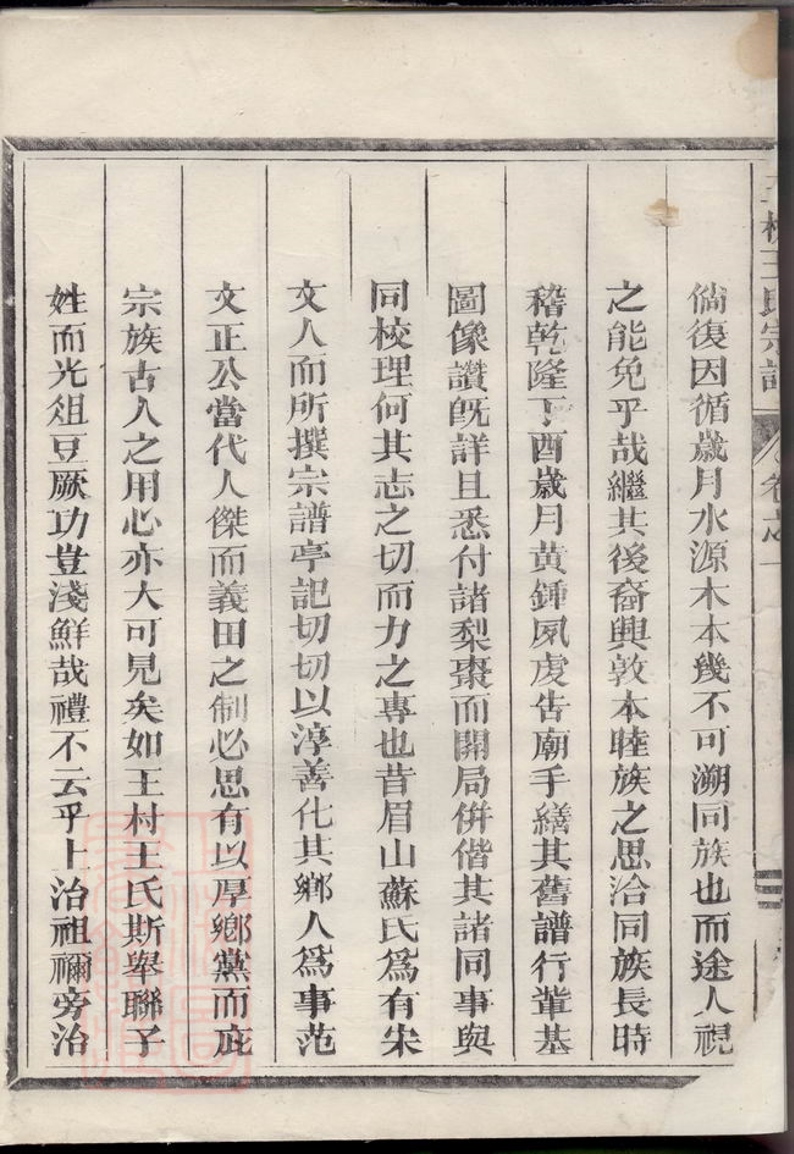 王氏宗譜
卷之一
倘復因循歲月水源木本幾不可溯同族也而途人視
之能免乎哉繼其後裔興敦本睦族之思洽同族長時
稽乾隆丁酉歲月黄鍾夙虔告廟手繕其舊譜行軰基
圖像讚旣詳且悉付諸梨棗而開局併偕其諸同事與
同校理何其志之切而力之專也昔眉山蘇氏爲有宋
文人而所撰宗譜亭記切切以淳善化其鄉人爲事范
文正公當代人傑而義田之制必思有以厚鄉黨而庇
宗族古人之用心亦大可見矣如王村王氏斯舉聯子
姓而光俎豆厥功豈淺鮮哉禮不云乎上治祖禰旁治